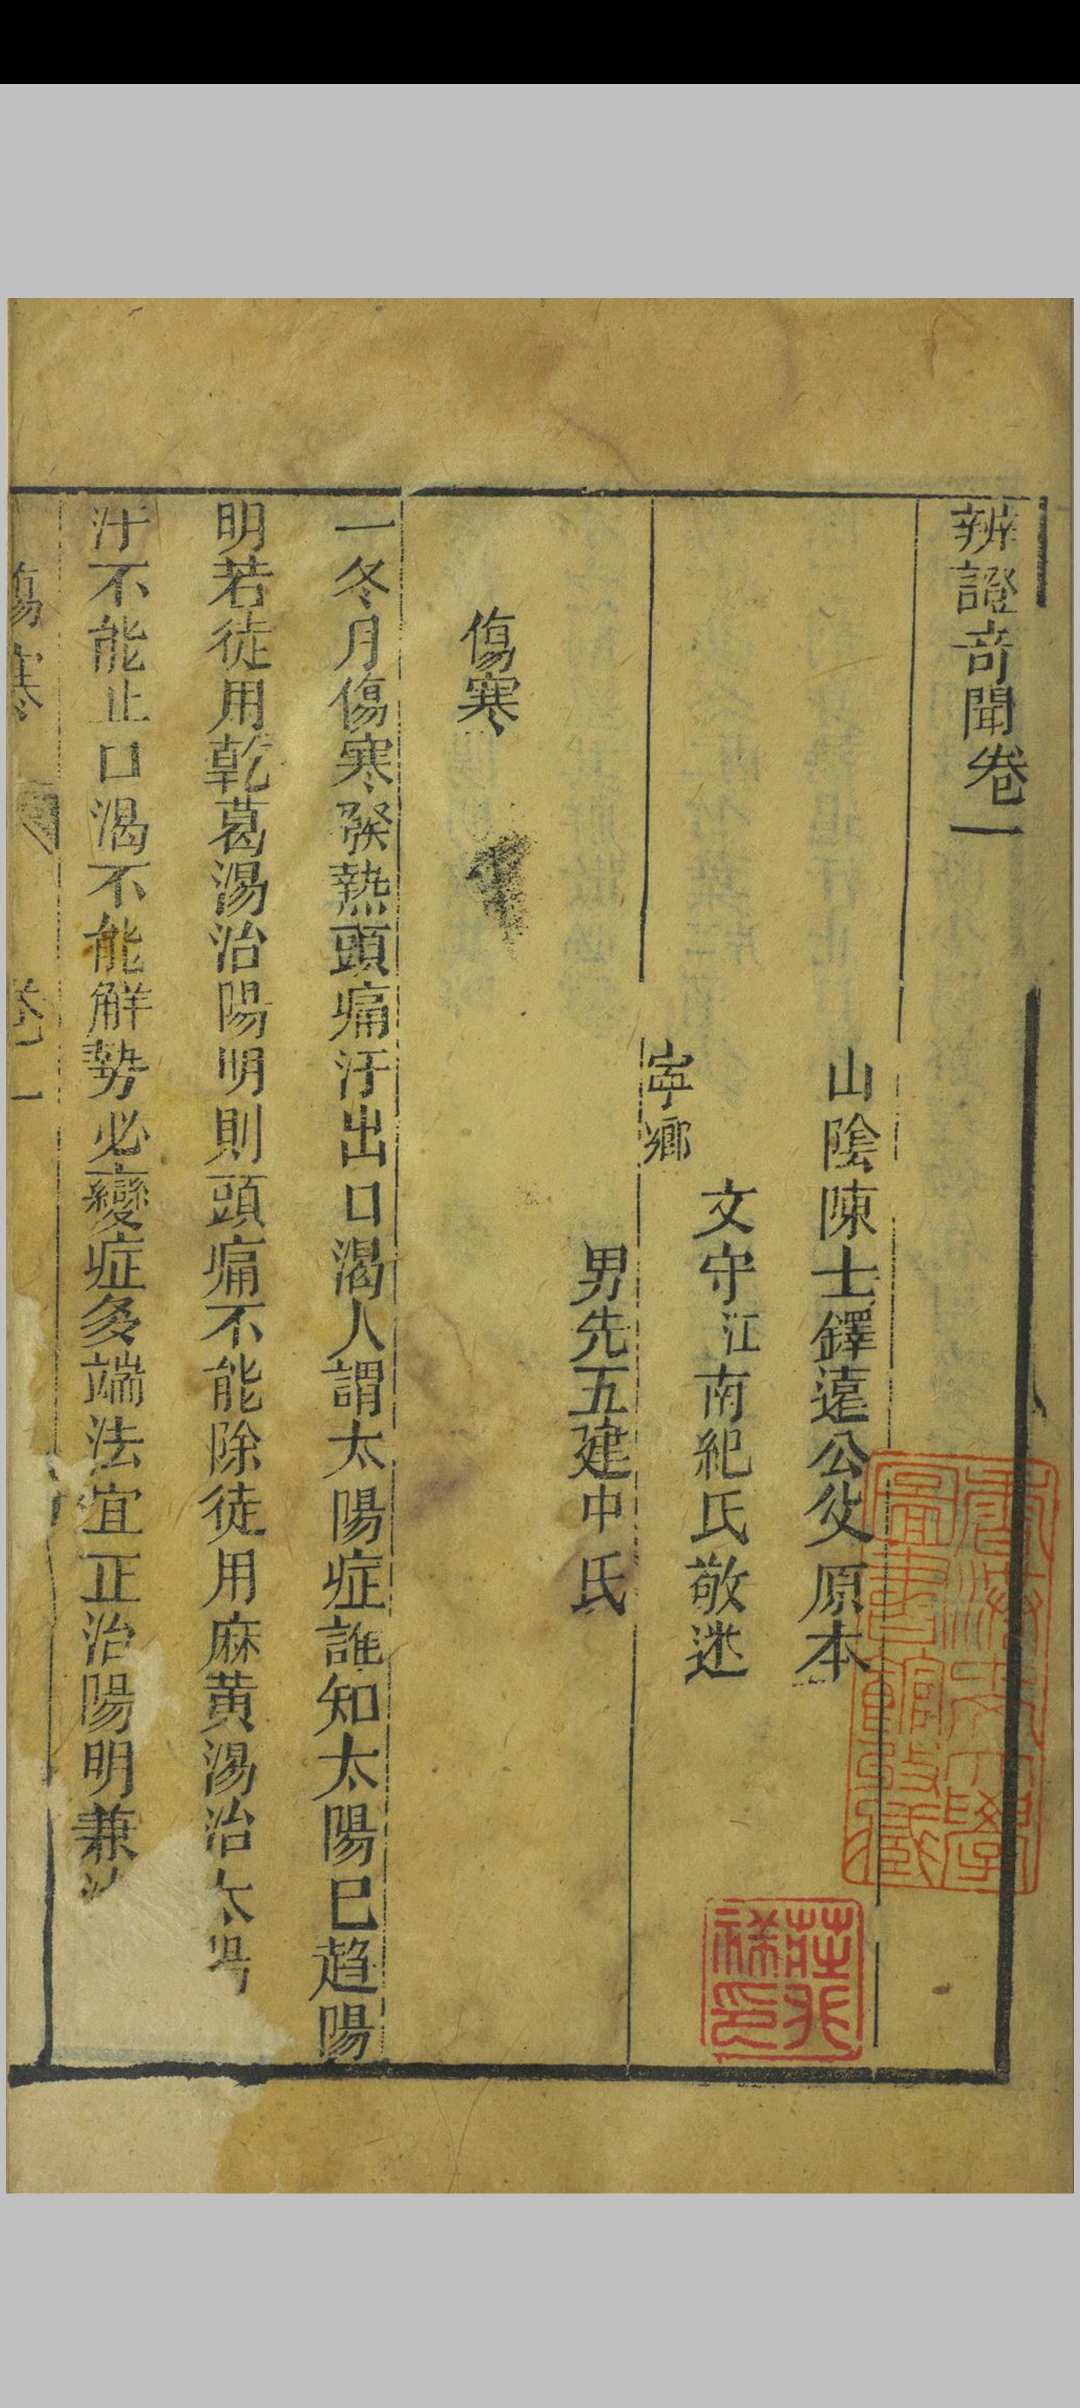 辨證奇聞卷一
山陰陳士鐸遠公父原本
文守江南紀氏敬述
寧鄉
男先五建中氏
傷寒
一冬月傷寒發熱頭痛汗出口渴人謂太陽症誰知太陽已趨陽
明若徒用乾葛湯治陽明則頭痛不能除徒用麻黄湯治太陽
汗不能止口渴不能解勢必變症多端法宜正治陽明兼
傷寒
卷一
莊兆祥印
香港大學
圖書館啟藏